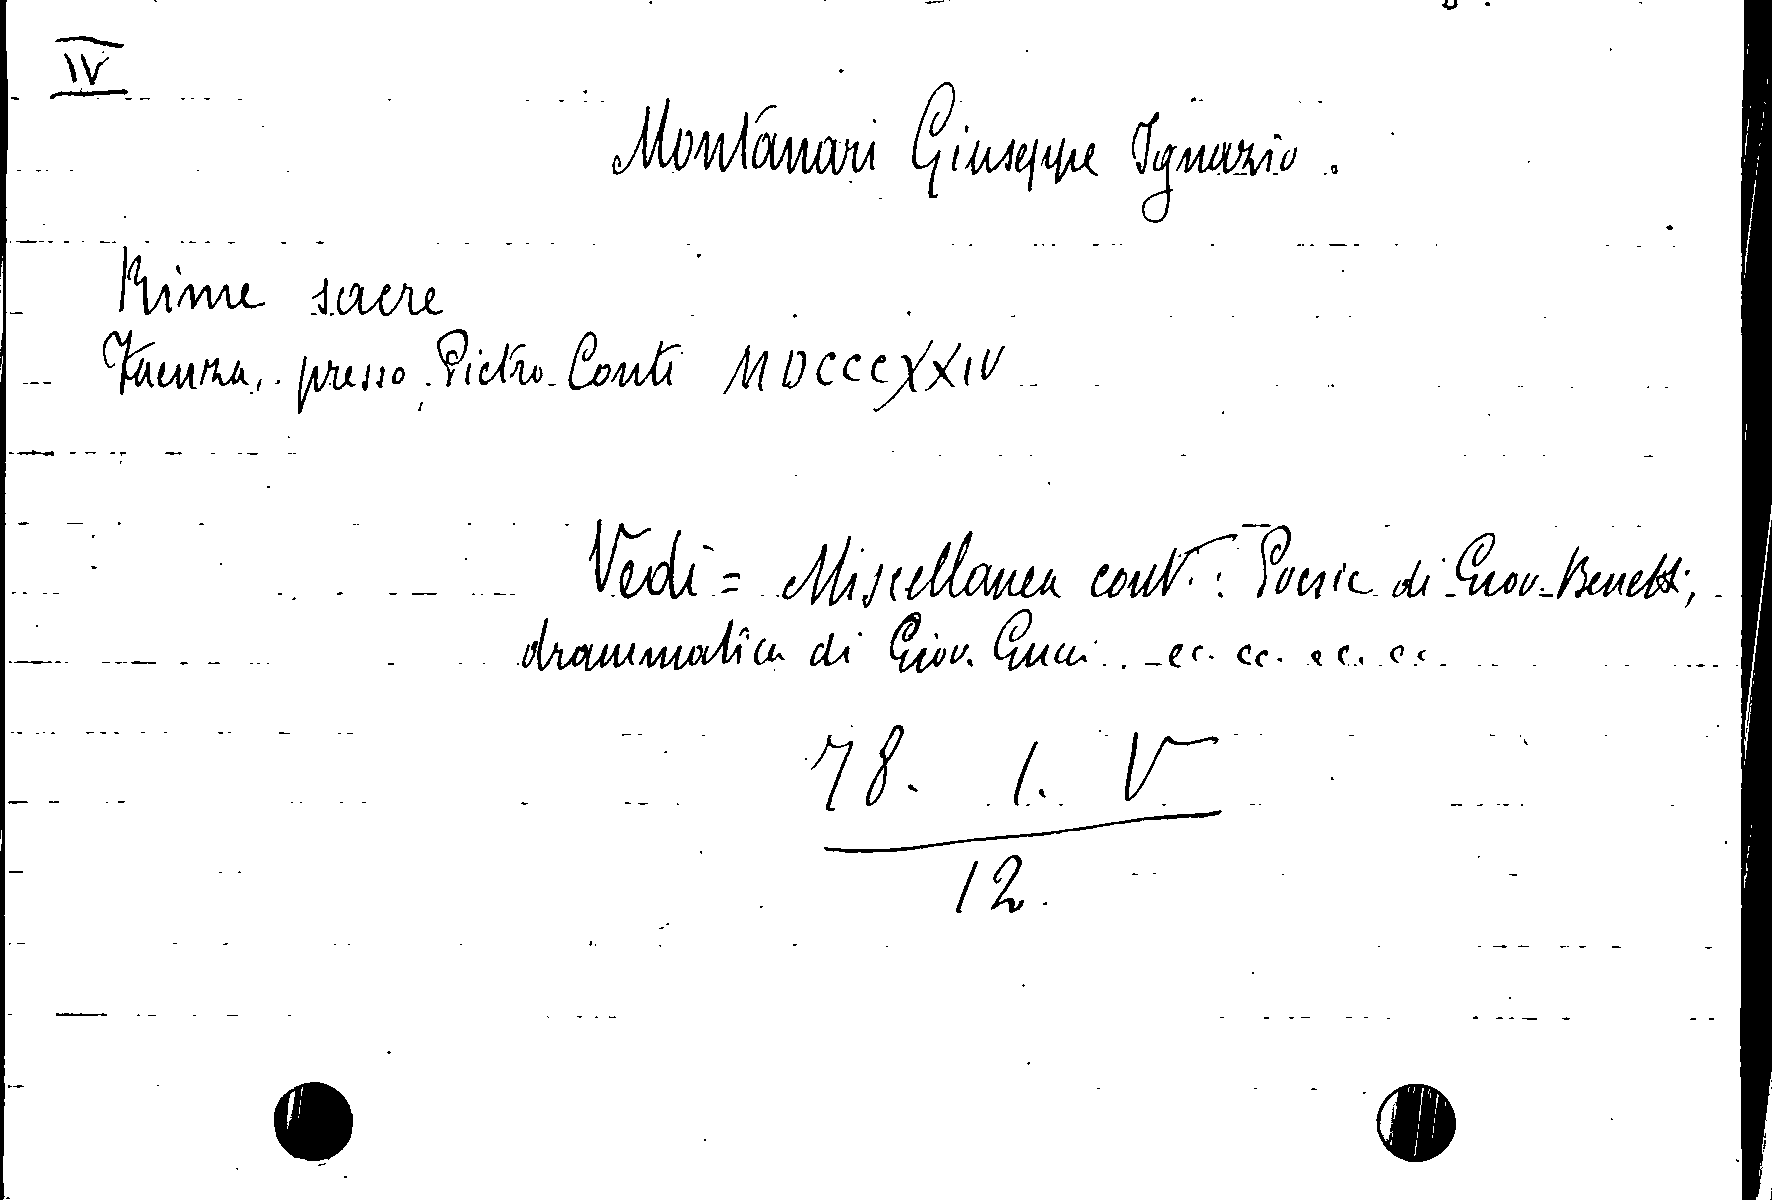 IV
Montanari Giuseppe Ignazio.
Rime sacre
Faenza, presso Pietro Conti MDCCCXXIV
Vedi = Miscellanea cont.: Poesie di Giov. Benetti;
drammatica di Giov. ec. ec. ec. ec.
78. 1. V
12.